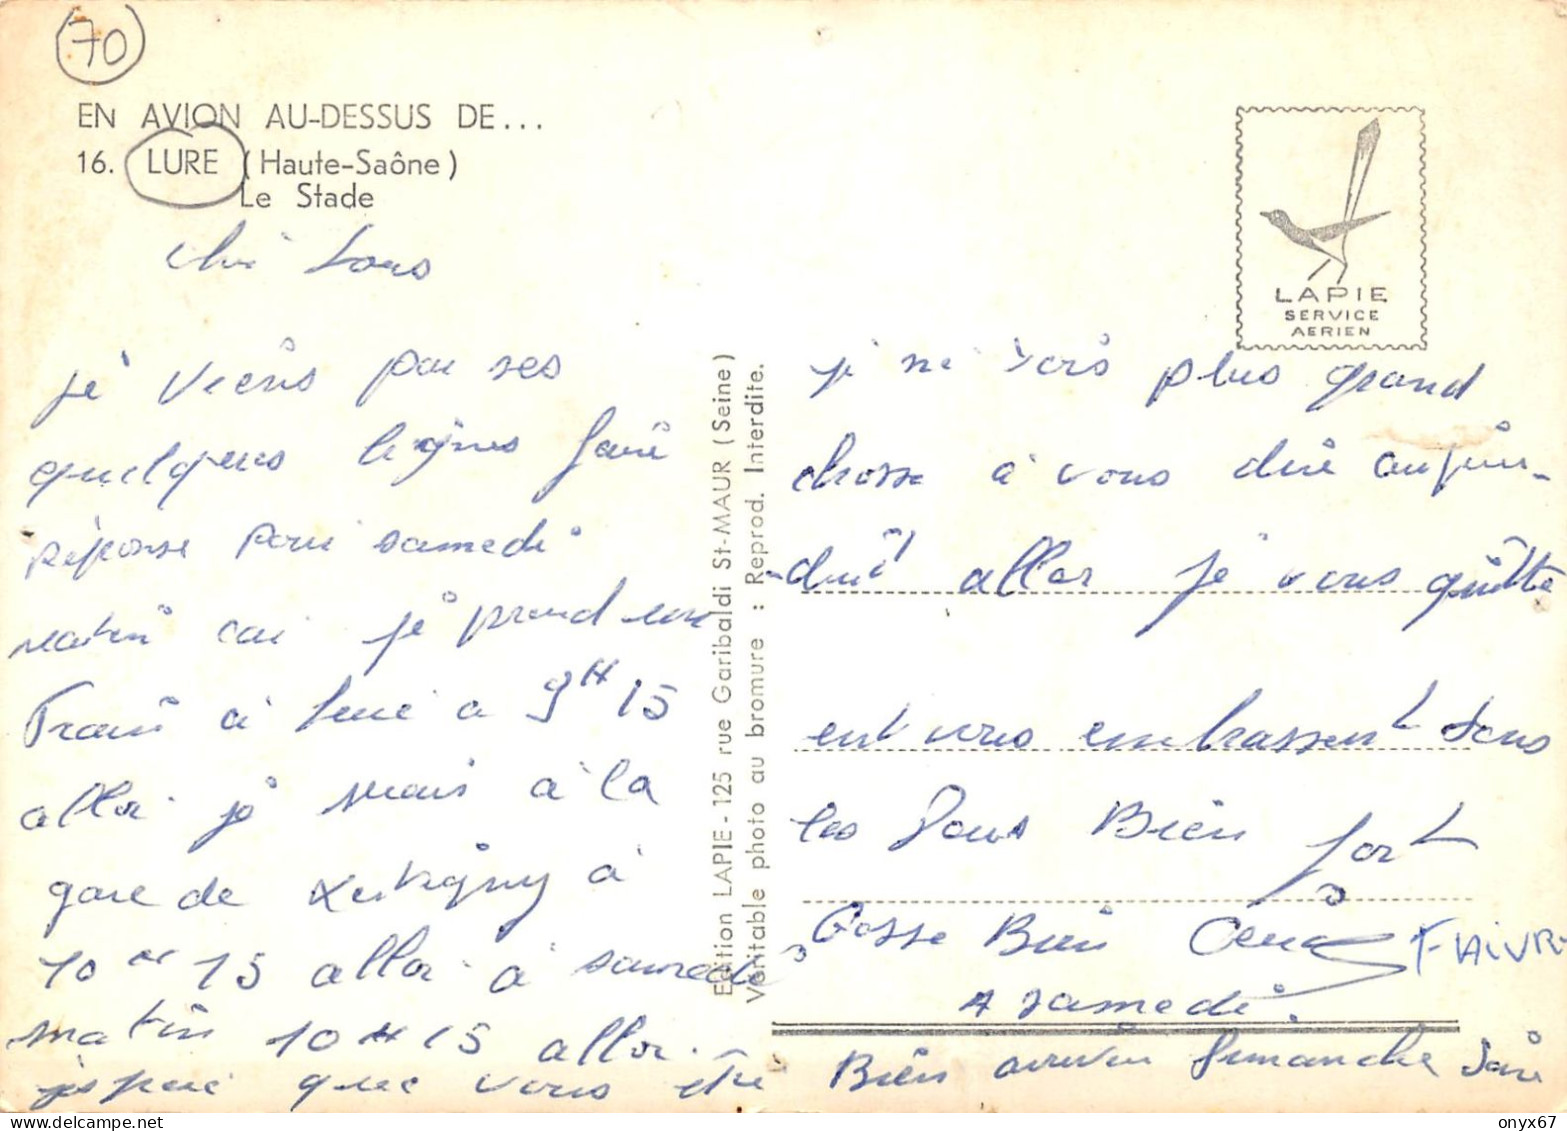 70
EN AVION AU-DESSUS DE...
16. LURE (Haute-Saône)
Le Stade
LAPIE
SERVICE
AERIEN
Edition LAPIE - 125 rue Garibaldi St-MAUR (Seine)
Véritable photo au bromure : Reprod. Interdite.
tous
je viens par ses
quelques lignes faire
réponse pour samedi
matin car je prend
Train à lure a 9H15
allor je serais à la
gare de Xertigny à
10 H 15 allor à samedi
matin 10 H 15 allor
j'espere que vous ete Bien arriver Dimanche soir
je ne vois plus grand
chosse à vous dire aujour-
-duit allor je vous quitte
ent vous embrassent tous
les Deux Bien fort
Gosse Bien
FAIVRE
A samedi.
onyx67